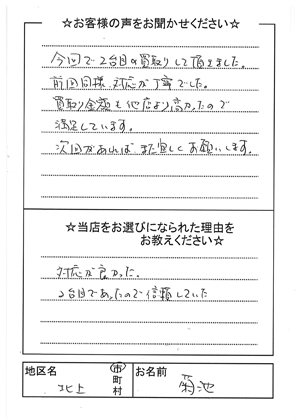 ☆お客様の声をお聞かせください☆
今回で2台目の買取りして頂きました。
前回同様、対応が丁寧でした。
買取り金額も他店より高かったので
満足しています。
次回があれば、また宜しくお願いします。
☆当店をお選びになられた理由を
お教えください☆
対応が良かった。
2台目であったので信頼していた
地区名 北上 市 町 村 お名前 菊池